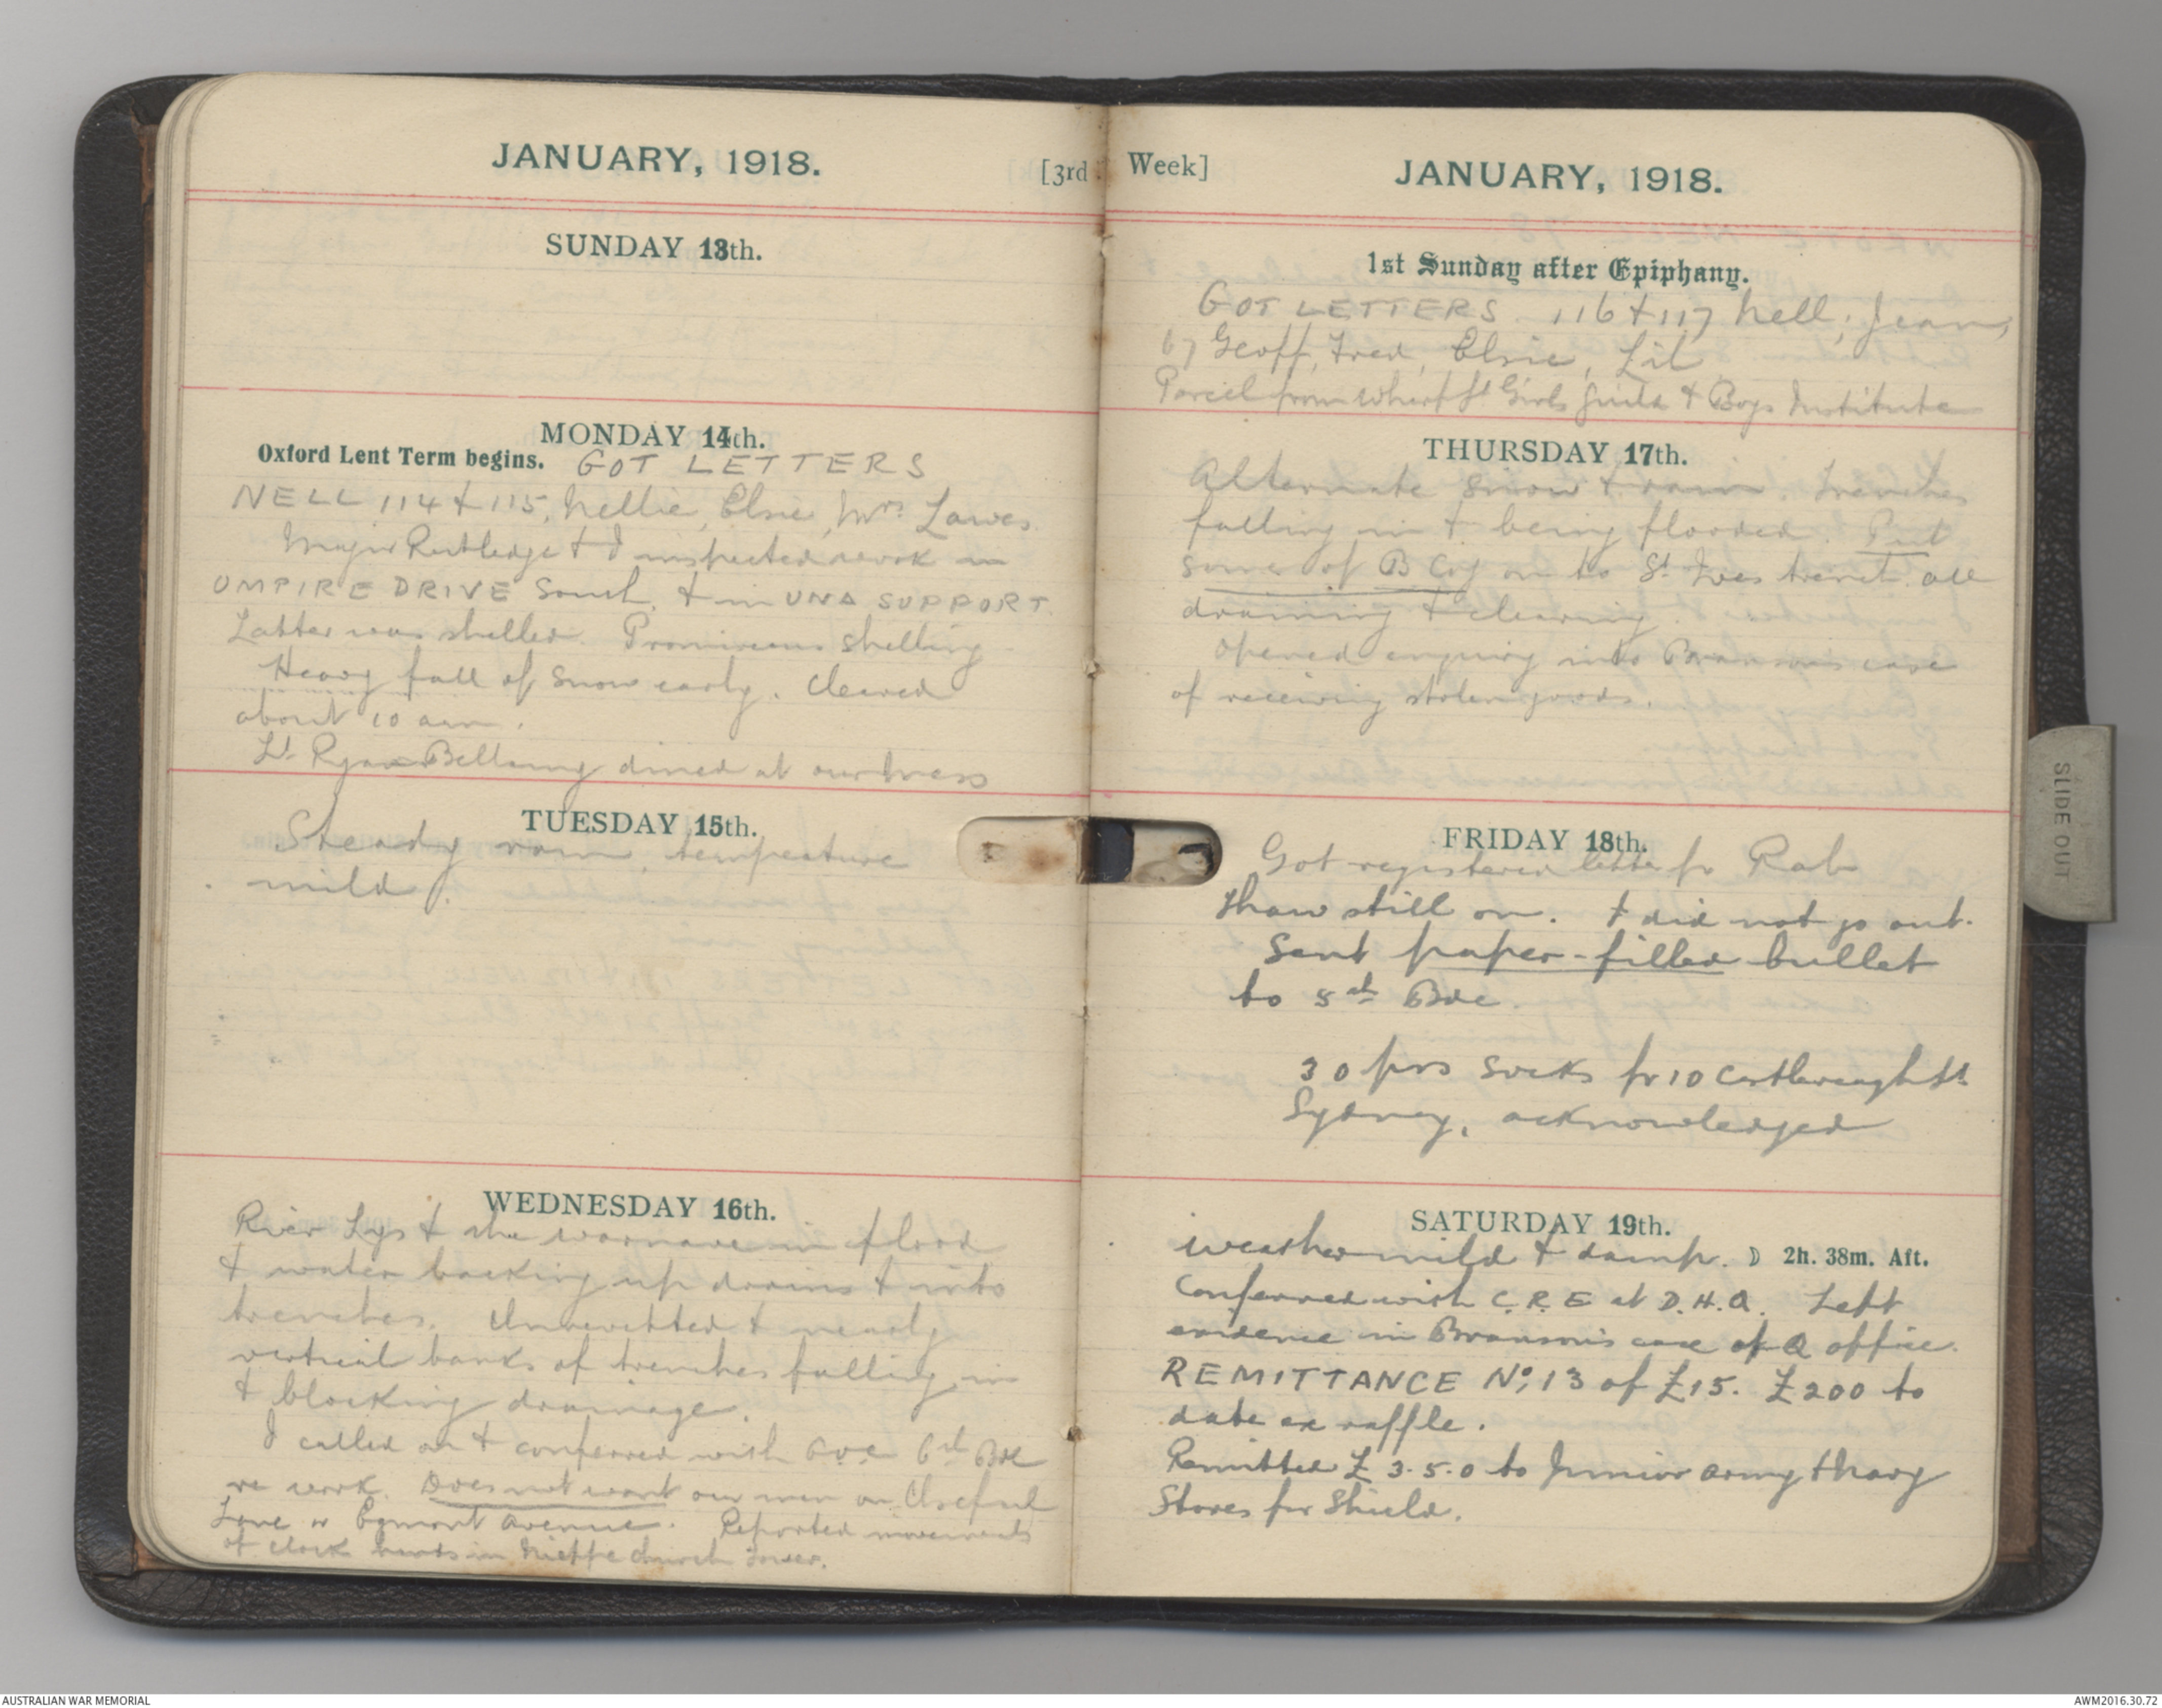 JANUARY, 1918.
[3rd
SUNDAY 13th.
MONDAY 14th.
Oxford Lent Term begins. GOT LETTERS
NELL 114 & 115, Nellie, Elsie, Mrs. Lawes.
Major Rutledge & I inspected work in
UMPIRE DRIVE South, & in UNA SUPPORT.
Latter was shelled. Promiscuous shelling
Heavy fall of snow early. Cleared
about 10 am.
Lt Ryan Bellamy dined at our mess
TUESDAY 15th.
Steady rain, temperature
mild.
WEDNESDAY 16th.
River Lys & the Warnave in flood
& water backing up drains & into
trenches. Unrevetted & nearly
vertical banks of trenches falling in
& blocking drainage.
I called on & conferred with GOC 6th Bde
re work. Does not want our men on Useful
Lane or Egmont Avenue. Reported movements
of clock hands in Nieppe church tower.
Week]
JANUARY, 1918.
1st Sunday after Epiphany.
GOT LETTERS 116 & 117 Nell, Jean,
67 Geoff, Fred, Elsie, Lil
Parcel from Wharf St Girls Guild & Boys Institute
THURSDAY 17th.
Alternate snow & rain. Trenches
falling in & being flooded. Put
some of B Coy on to St. Ives trench all
draining & clearing.
Opened enquiry into Branson's case
of receiving stolen goods.
FRIDAY 18th.
Got registered letter fr Rab
Thaw still on. I did not go out.
Sent paper-filled bullet
to 5th Bde.
30 prs socks fr 10 Castlereagh St
Sydney, acknowledged
SATURDAY 19th.
Weather mild & damp. ☽ 2h. 38m. Aft.
Conferred with C.R.E at D.H.Q. Left
evidence in Branson's case at Q office.
REMITTANCE No. 13 of £15. £200 to
date ex raffle.
Remitted £3.5.0 to Junior Army & Navy
Stores for Shield.
SLIDE OUT
AUSTRALIAN WAR MEMORIAL
AWM2016.30.72